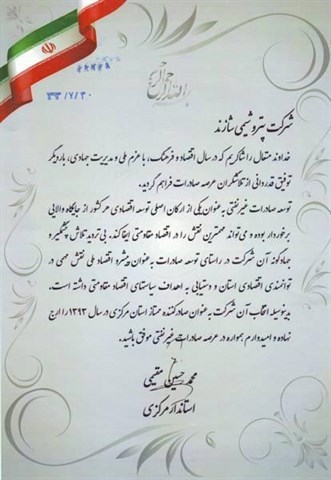 بسم الله الرحمن الرحیم
۹۳/۷/۳۰
شرکت پتروشیمی شازند
خداوند متعال را شاکریم که در سال اقتصاد و فرهنگ، با عزم ملی و مدیریت جهادی، بار دیگر
توفیق قدردانی از تلاشگران عرصه صادرات فراهم گردید.
توسعه صادرات غیرنفتی به عنوان یکی از ارکان اصلی توسعه اقتصادی هر کشور از جایگاه والایی
برخوردار بوده و می‌تواند مهمترین نقش را در اقتصاد مقاومتی ایفا کند. بی‌تردید تلاش پیگیر و
جهادگونه آن شرکت در راستای توسعه صادرات به عنوان پیشرو اقتصاد ملی نقش مهمی در
توانمندی اقتصادی استان و دستیابی به اهداف سیاستهای اقتصاد مقاومتی داشته است.
بدینوسیله انتخاب آن شرکت به عنوان صادرکننده ممتاز استان مرکزی در سال ۱۳۹۳ را ارج
نهاده و امیدوارم همواره در عرصه صادرات غیرنفتی موفق باشید.
محمد حسین مقیمی
استاندار مرکزی